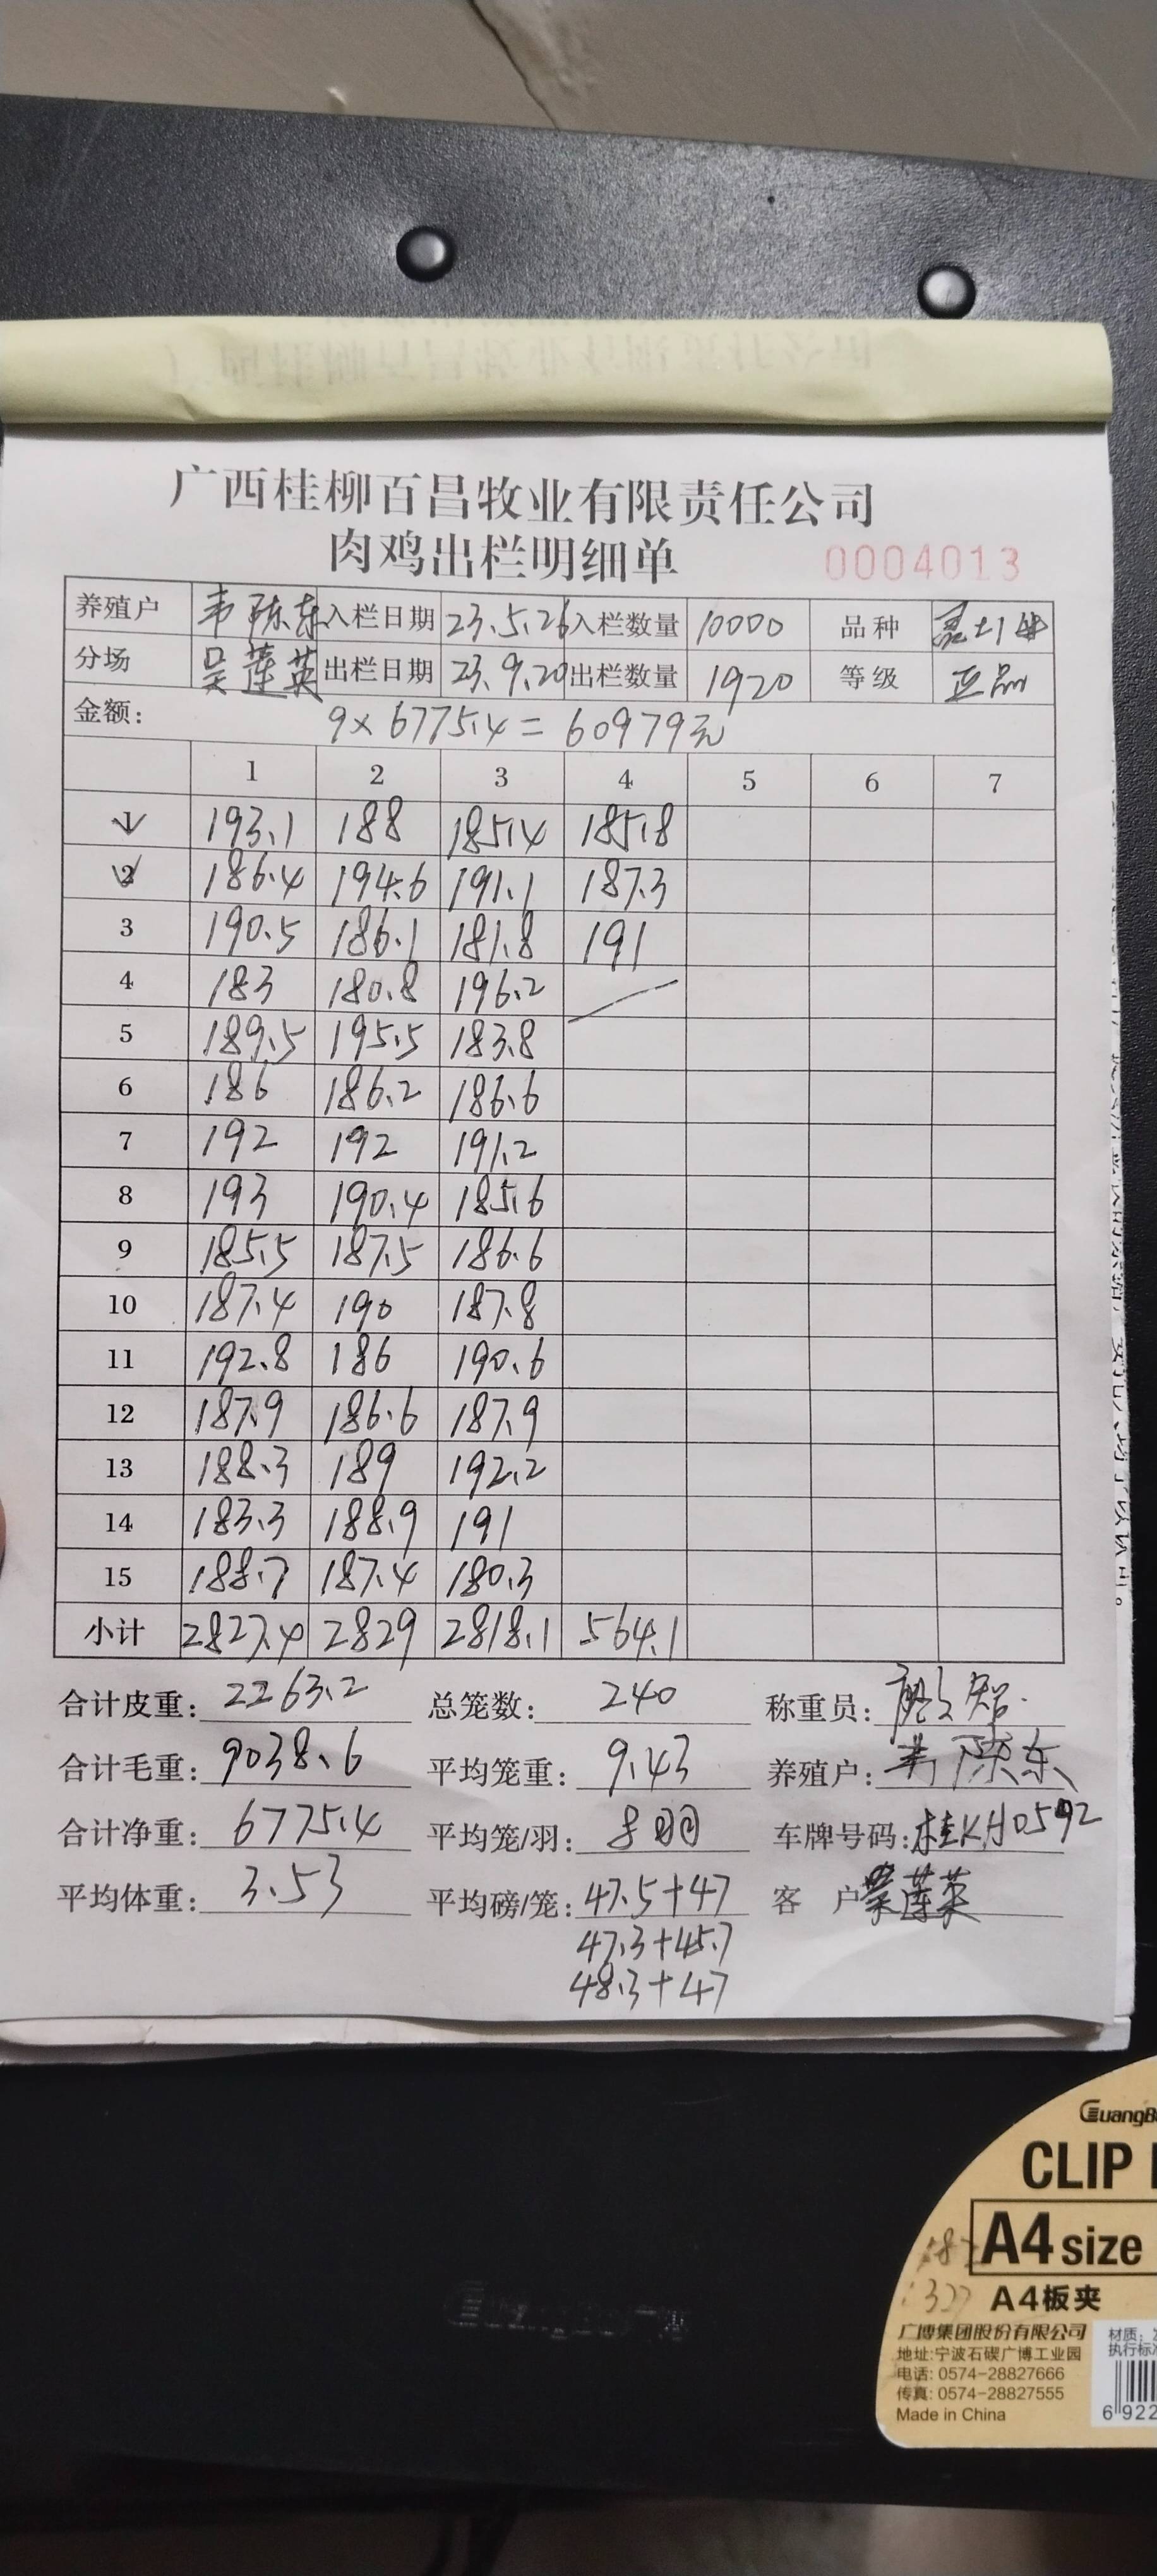 广西桂柳百昌牧业有限责任公司
肉鸡出栏明细单 0004013
养殖户 韦陈东 入栏日期 23.5.26 入栏数量 10000 品种
分场 吴莲英 出栏日期 23.9.20 出栏数量 1920 等级 正品
金额: 9×6775.4=60979元
1 2 3 4 5 6 7
1 193.1 188 185.4 185.8
2 186.4 194.6 191.1 187.3
3 190.5 186.1 181.8 191
4 183 180.8 196.2
5 189.5 195.5 183.8
6 186 186.2 186.6
7 192 192 191.2
8 193 190.4 185.6
9 185.5 187.5 186.6
10 187.4 190 187.8
11 192.8 186 190.6
12 187.9 186.6 187.9
13 188.3 189 192.2
14 183.3 188.9 191
15 188.7 187.4 180.3
小计 2827.4 2829 2818.1 564.1
合计皮重: 2263.2 总笼数: 240 称重员:
合计毛重: 9038.6 平均笼重: 9.43 养殖户: 韦陈东
合计净重: 6775.4 平均笼/羽: 8羽 车牌号码: 桂KH0592
平均体重: 3.53 平均磅/笼: 47.5+47 客户 莲英
47.3+45.7
48.3+47
GuangB
CLIP
A4 size
A4板夹
广博集团股份有限公司
地址:宁波石碶广博工业园
电话: 0574-28827666
传真: 0574-28827555
Made in China
材质:
执行标
6 922